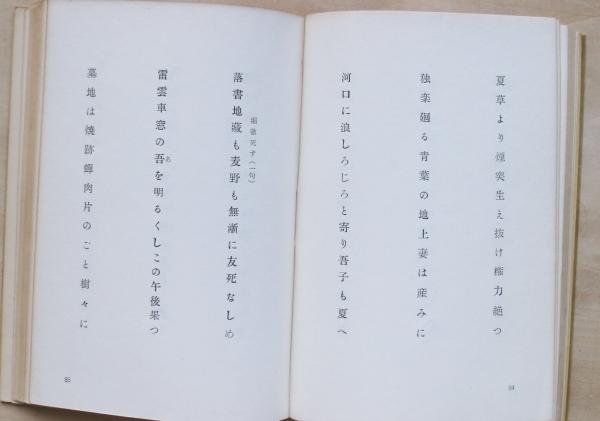 夏草より煙突生え抜け権力絶つ
独楽廻る青葉の地上妻は産みに
河口に浪しろじろと寄り吾子も夏へ
84
堀徹死す(一句)
落書地蔵も麦野も無漸に友死なしめ
雷雲車窓の吾を明るくしこの午後果つ
あ
墓地は焼跡蟬肉片のごと樹々に
85